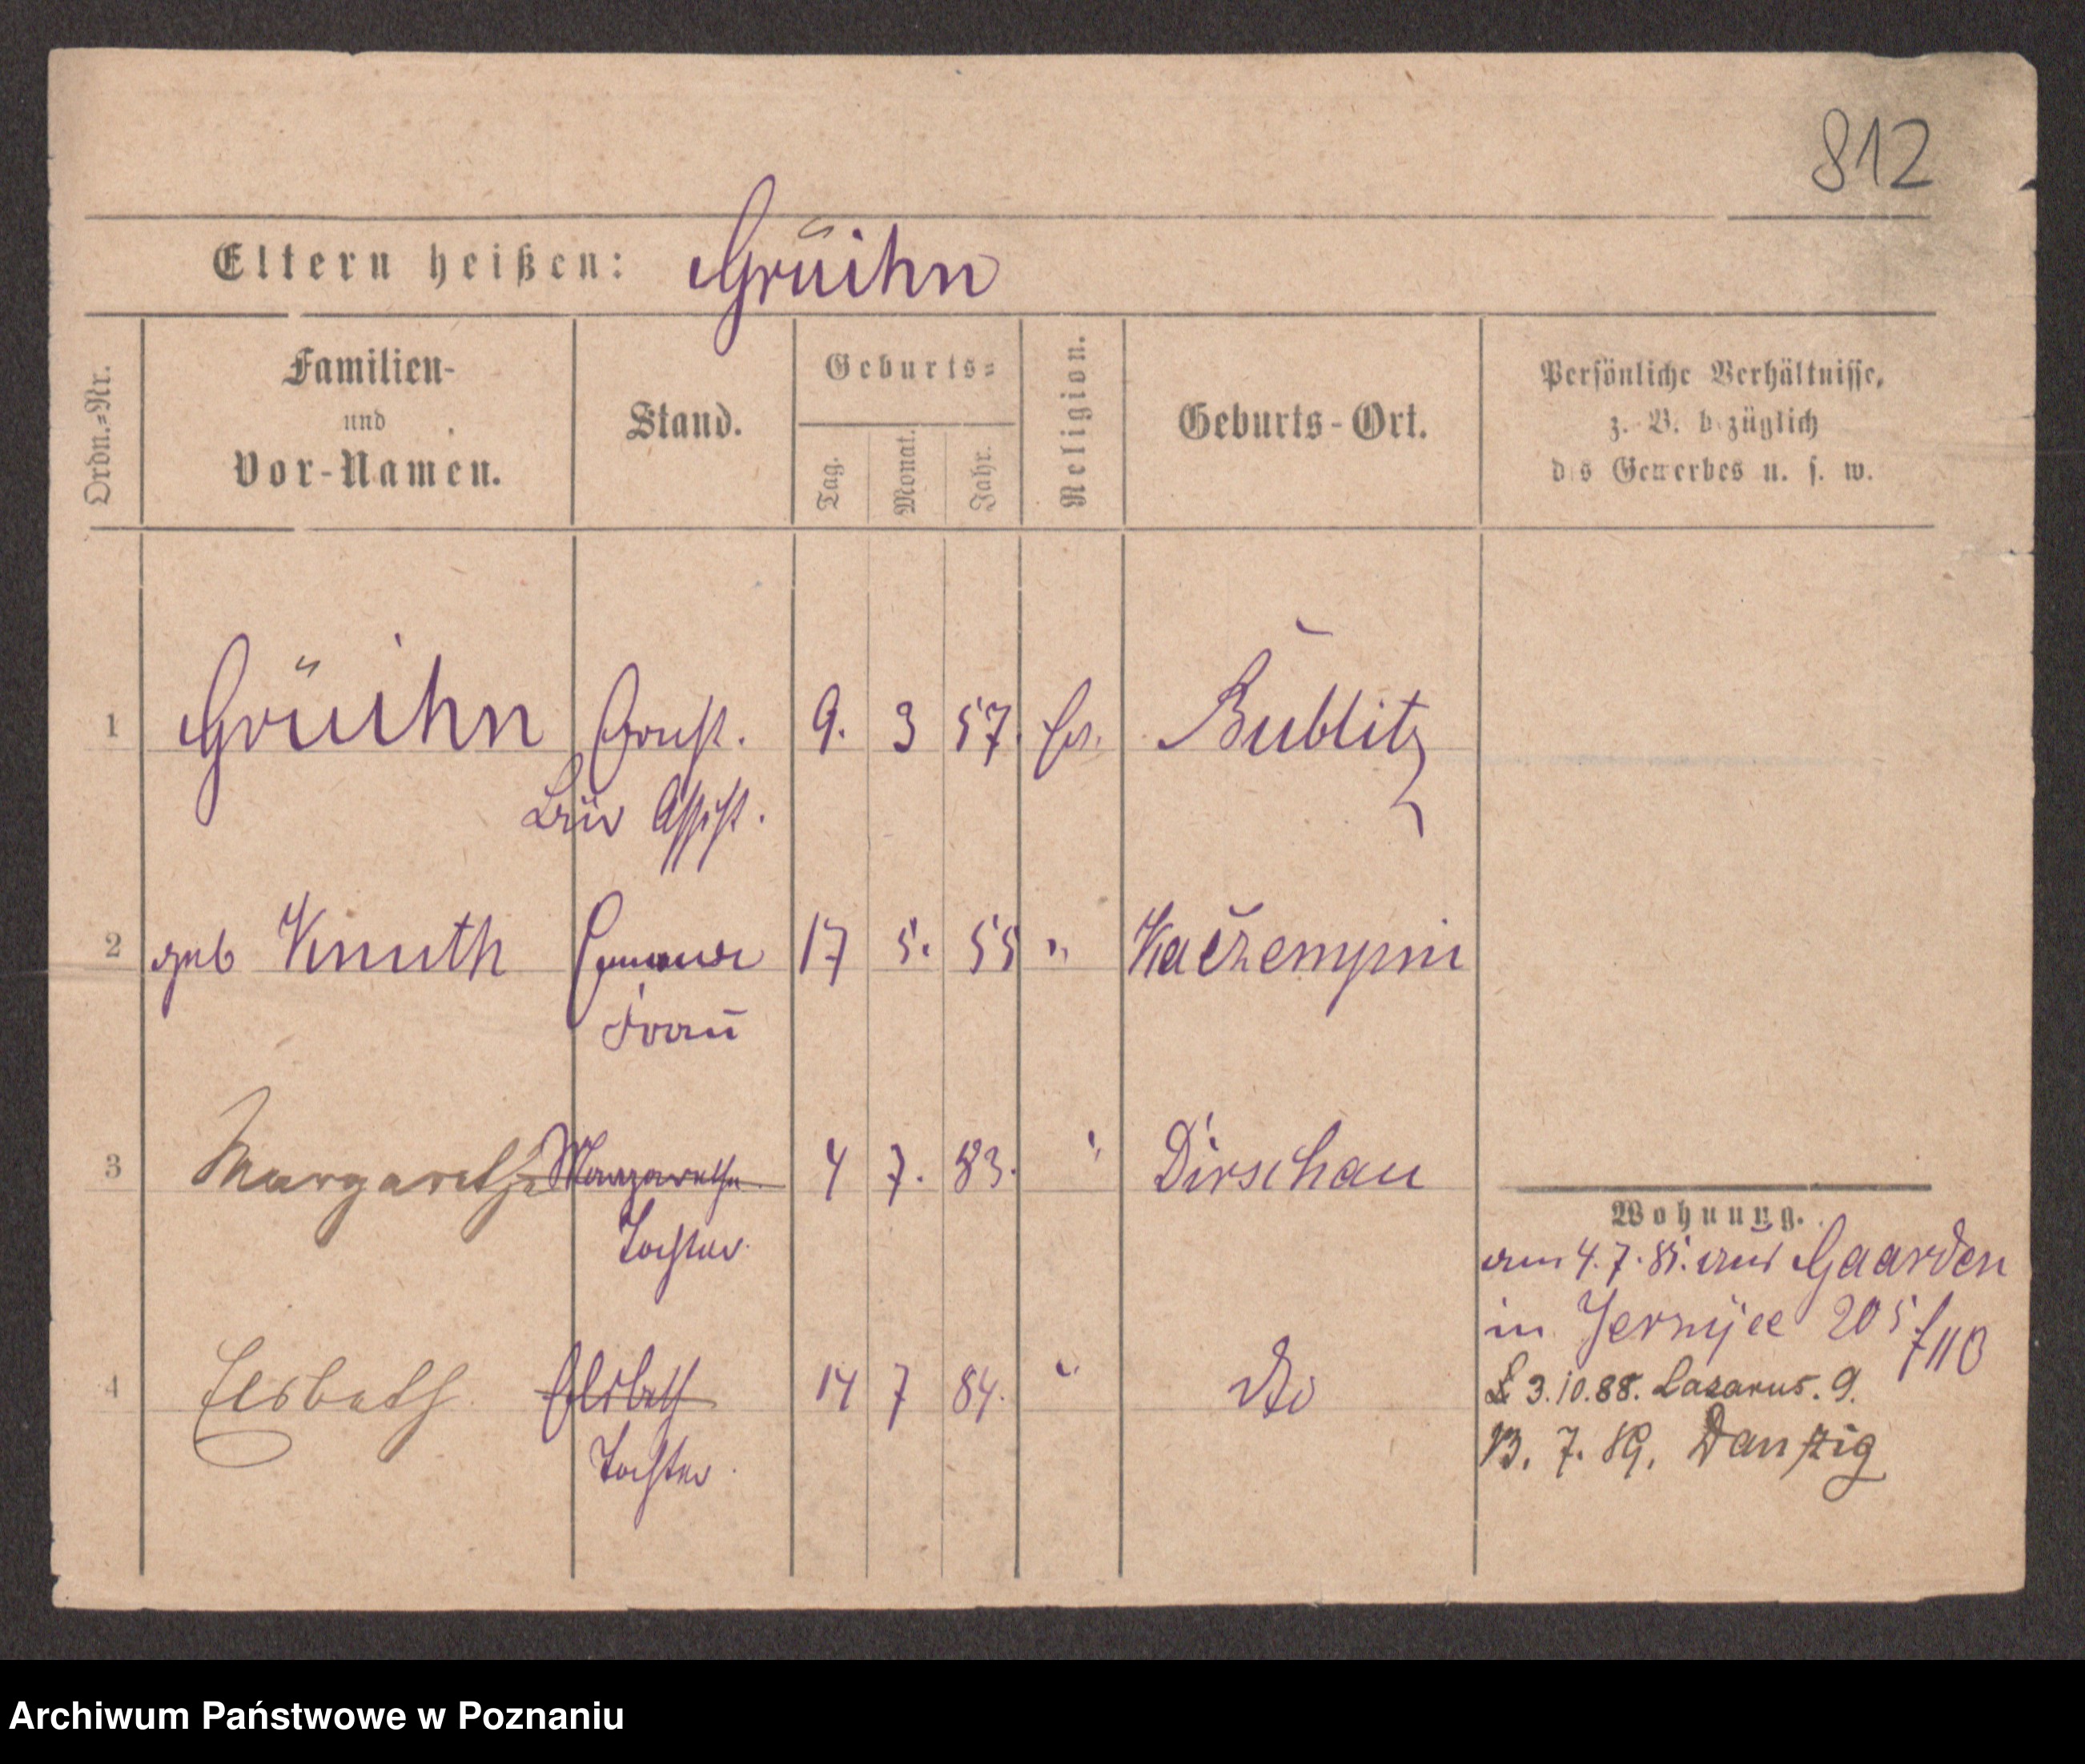 812
Eltern heißen: Grüihn
Ordn.=Nr.
Familien-
und
Vor-Namen.
Stand.
Geburts=
Tag.
Monat.
Jahr.
Religion.
Geburts-Ort.
Persönliche Verhältnisse,
z. B. bezüglich
des Gewerbes u. s. w.
1 Grüihn Ernst. 9. 3 57. Ev. Bublitz
Assist.
2 geb Knuth Emma 17 5. 55 " Kaczempin
Frau
3 Margarethe Margarethe 4 7. 83. " Dirschau
Tochter
4 Elsbeth Elsbeth 14 7 84. " do
Tochter.
Wohnung.
am 4.7.85. aus Gaarden
in Jersyce 205
3.10.88. Lazarus. 9.
13. 7. 89. Danzig
Archiwum Państwowe w Poznaniu